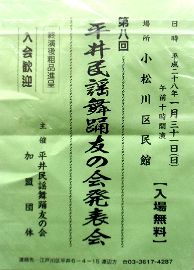 日時 平成二十八年一月三十一日(日)
午前十時開演
場所 小松川区民館
【入場無料】
第八回
平井民謡舞踊友の会発表会
終演後粗品進呈
入会歓迎
主催 平井民謡舞踊友の会
加盟団体
連絡先 江戸川区平井6-4-15 渡辺方 ☎03-3617-4287